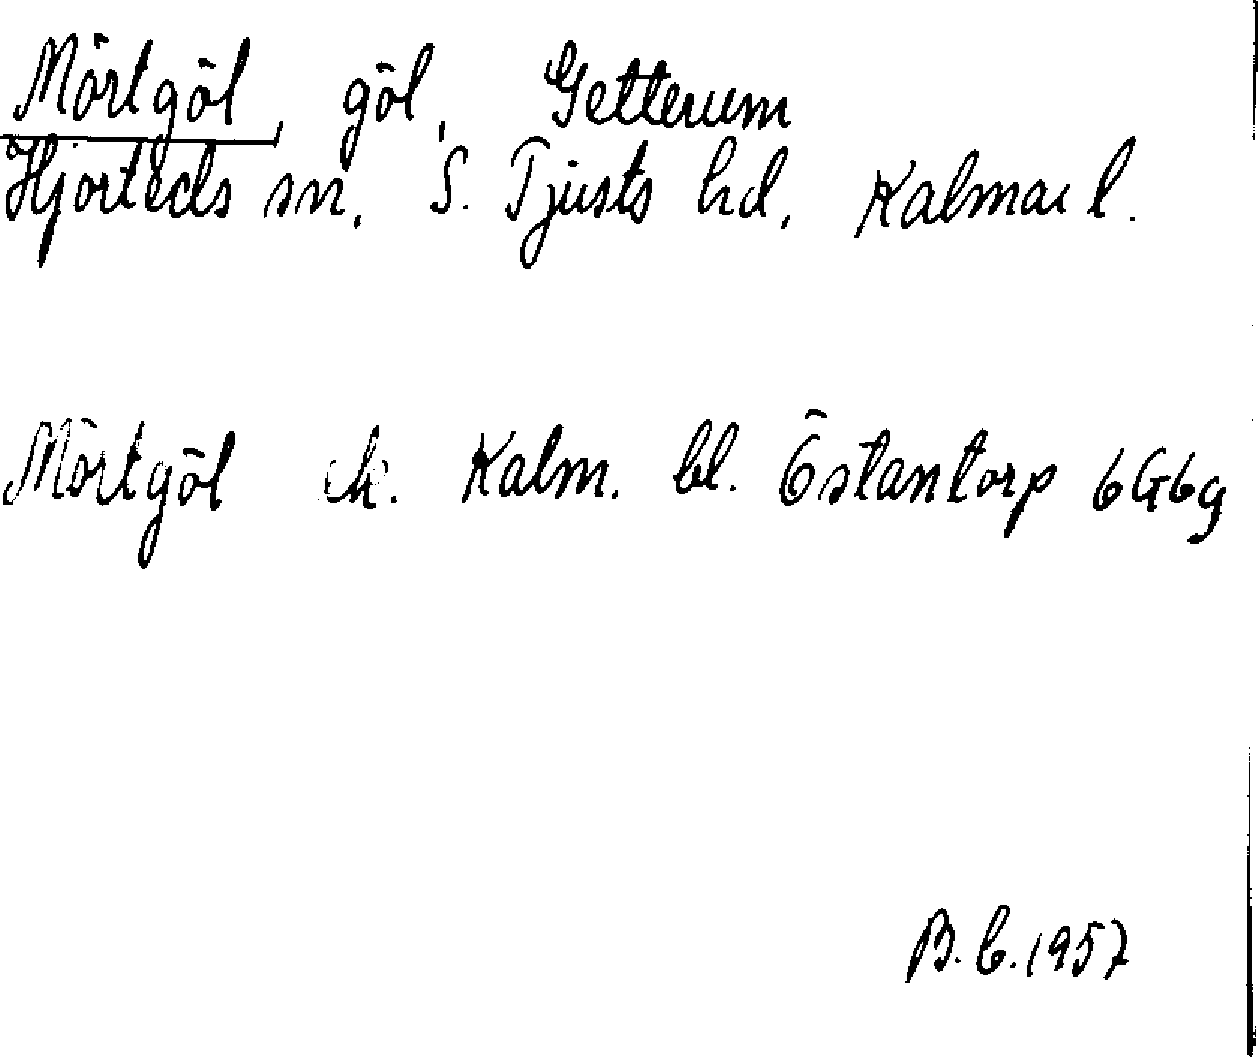 Mörtgöl, göl, Getterum
Hjorteds sn, S. Tjusts hd, Kalmar l.
Mörtgöl ek. Kalm. bl. Östantorp 6G6g
B.C. 1957